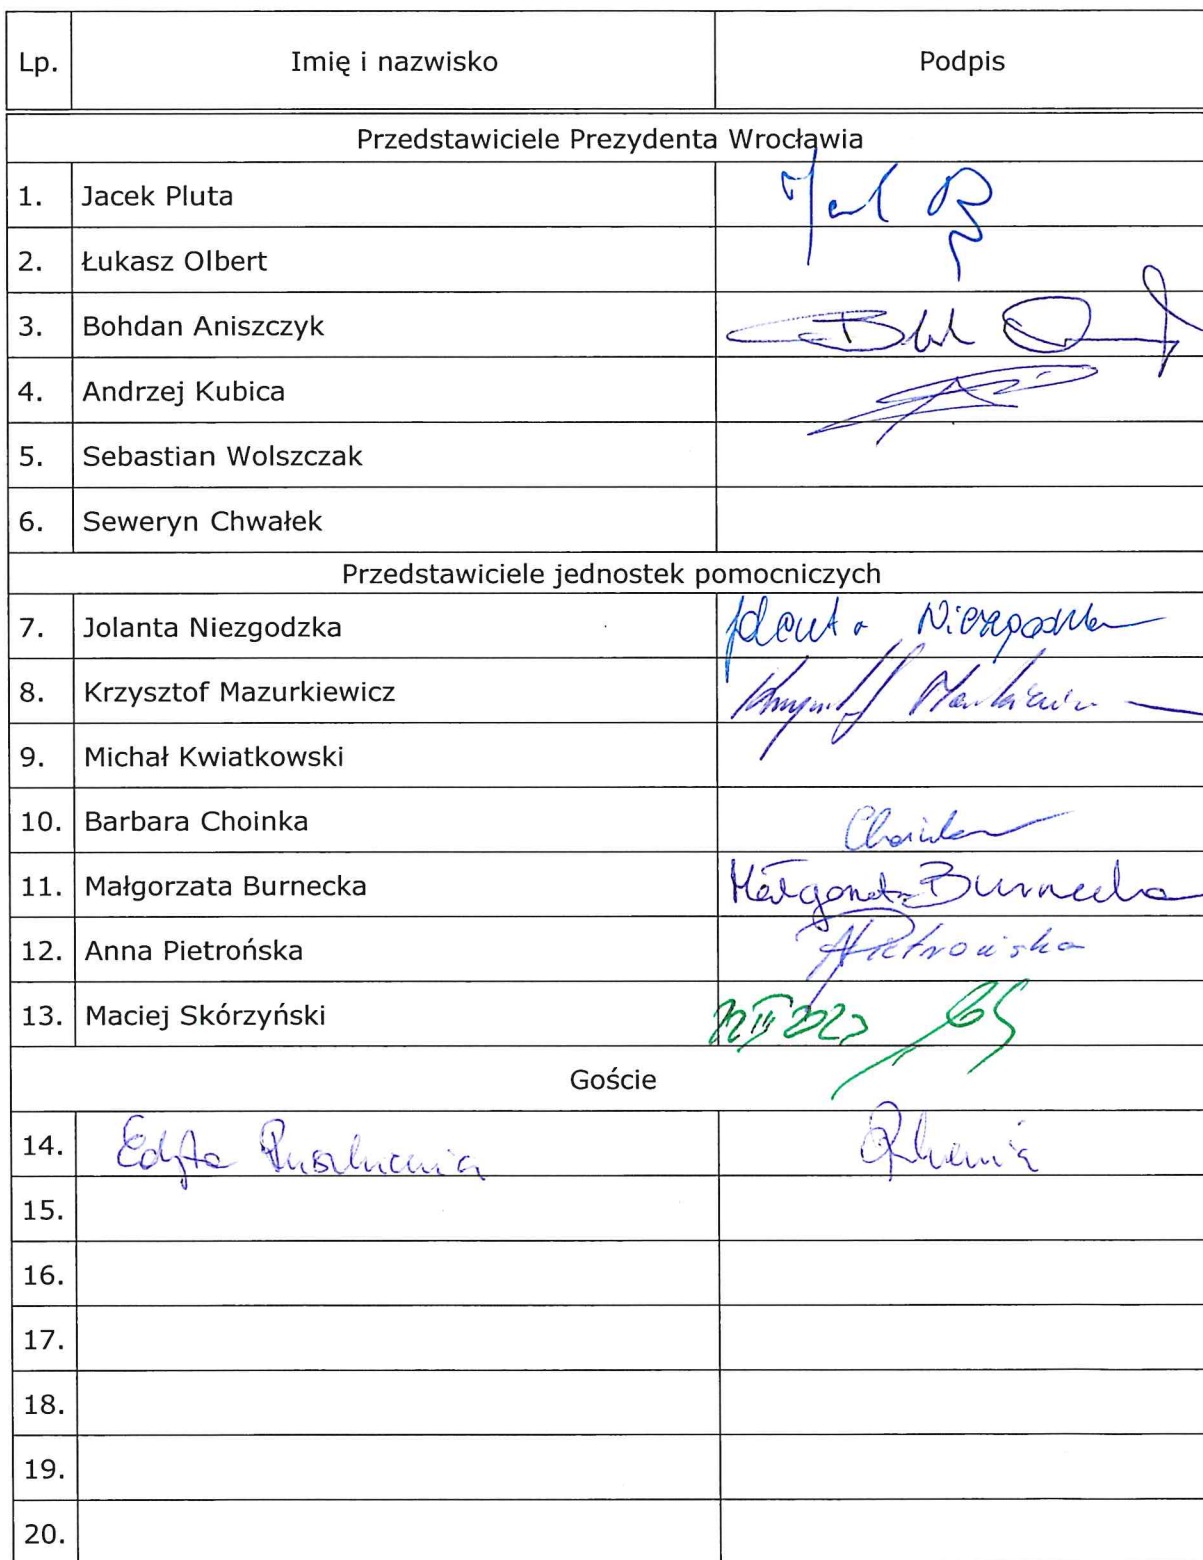 Lp. Imię i nazwisko Podpis
Przedstawiciele Prezydenta Wrocławia
1. Jacek Pluta
2. Łukasz Olbert
3. Bohdan Aniszczyk
4. Andrzej Kubica
5. Sebastian Wolszczak
6. Seweryn Chwałek
Przedstawiciele jednostek pomocniczych
7. Jolanta Niezgodzka Jolanta Niezgodzka
8. Krzysztof Mazurkiewicz
9. Michał Kwiatkowski
10. Barbara Choinka Choinka
11. Małgorzata Burnecka Małgorzata Burnecka
12. Anna Pietrońska APietrońska
13. Maciej Skórzyński
Goście
14. Edyta
15.
16.
17.
18.
19.
20.